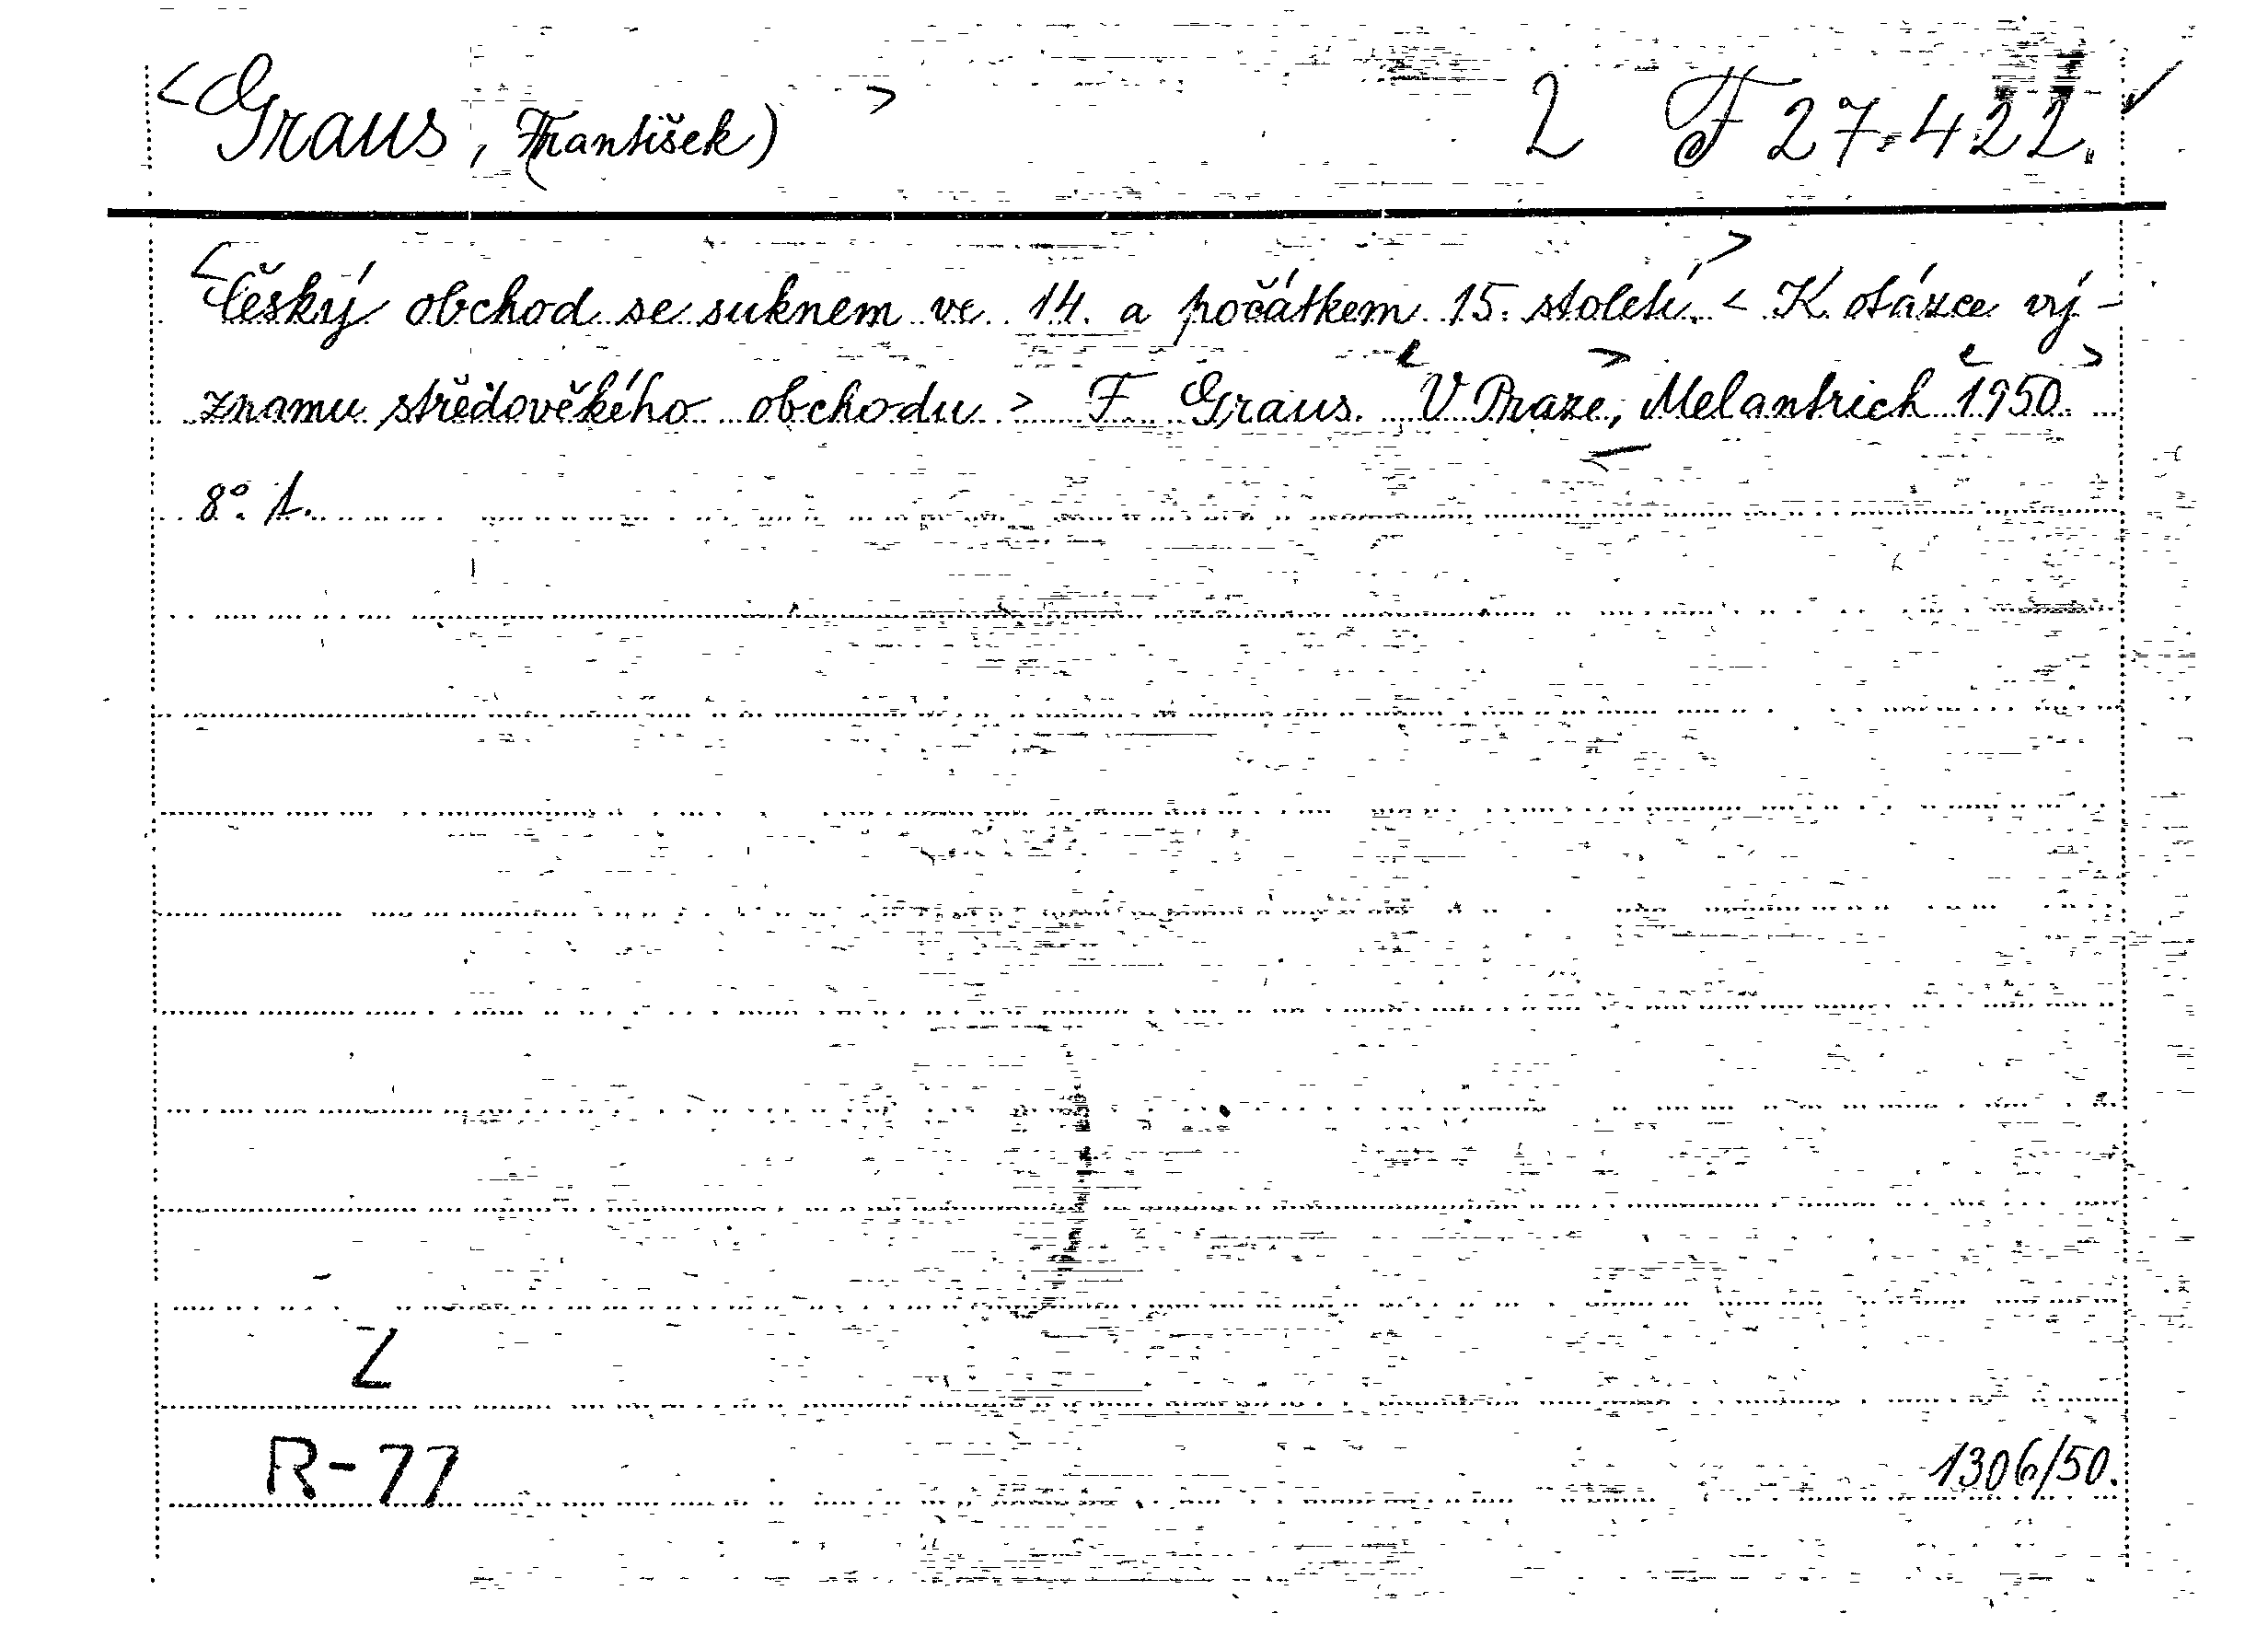 <Graus, František) > 2 F 27.422. ✓
<Český obchod se suknem ve 14. a počátkem 15. století.> < K otázce vý-
znamu středověkého obchodu > F. Graus. <V Praze,> Melantrich <1950.>
8°. 1.
Z
R-77 1306/50.